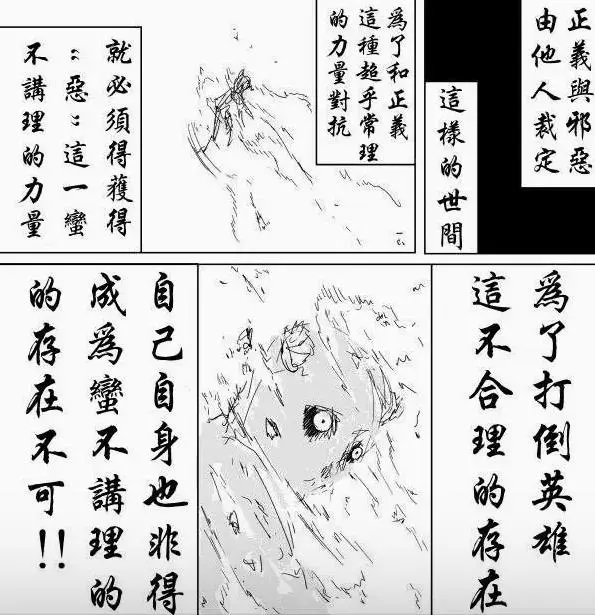 正義與邪惡
由他人裁定
這樣的世間
為了和正義
這種超乎常理
的力量對抗
就必須得獲得
：惡：這一蠻
不講理的力量
為了打倒英雄
這不合理的存在
自己自身也非得
成為蠻不講理的
的存在不可！！